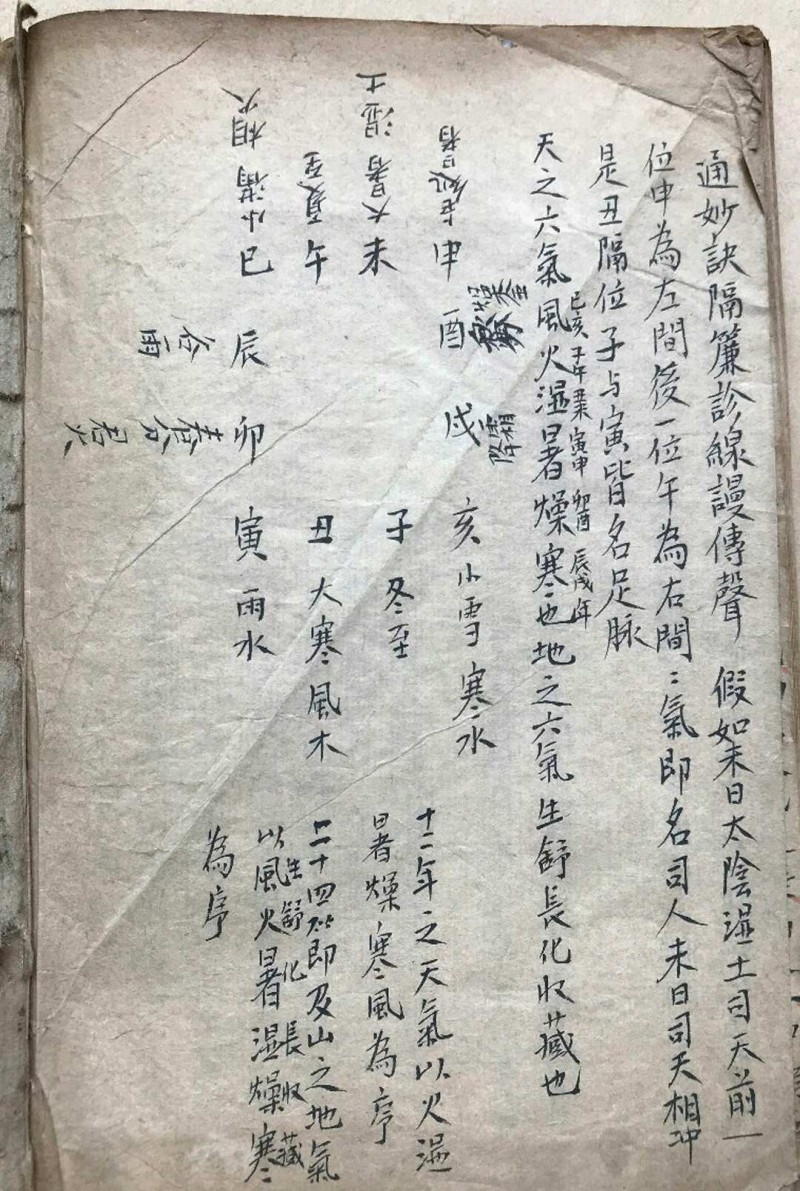 通妙訣隔簾診線謾傳聲 假如未日太陰濕土司天前一
位申為左間後一位午為右間〻氣即名司人未日司天相沖
是丑隔位子与寅皆名足脉
已亥 子午 丑未 寅申 卯酉 辰戌年
天之六氣風火濕暑燥寒也地之六氣生舒長化收藏也
申 处暑
未 大暑 濕土
午 夏至
巳 小滿 相火
酉 燥金
戌 霜降
辰 谷雨
卯 春分 君火
亥 小雪 寒水
子 冬至
丑 大寒 風木
寅 雨水
十二年之天氣以火濕
暑燥寒風為序
二十四 即及山之地氣
生舒化長收藏
以風火暑濕燥寒
為序